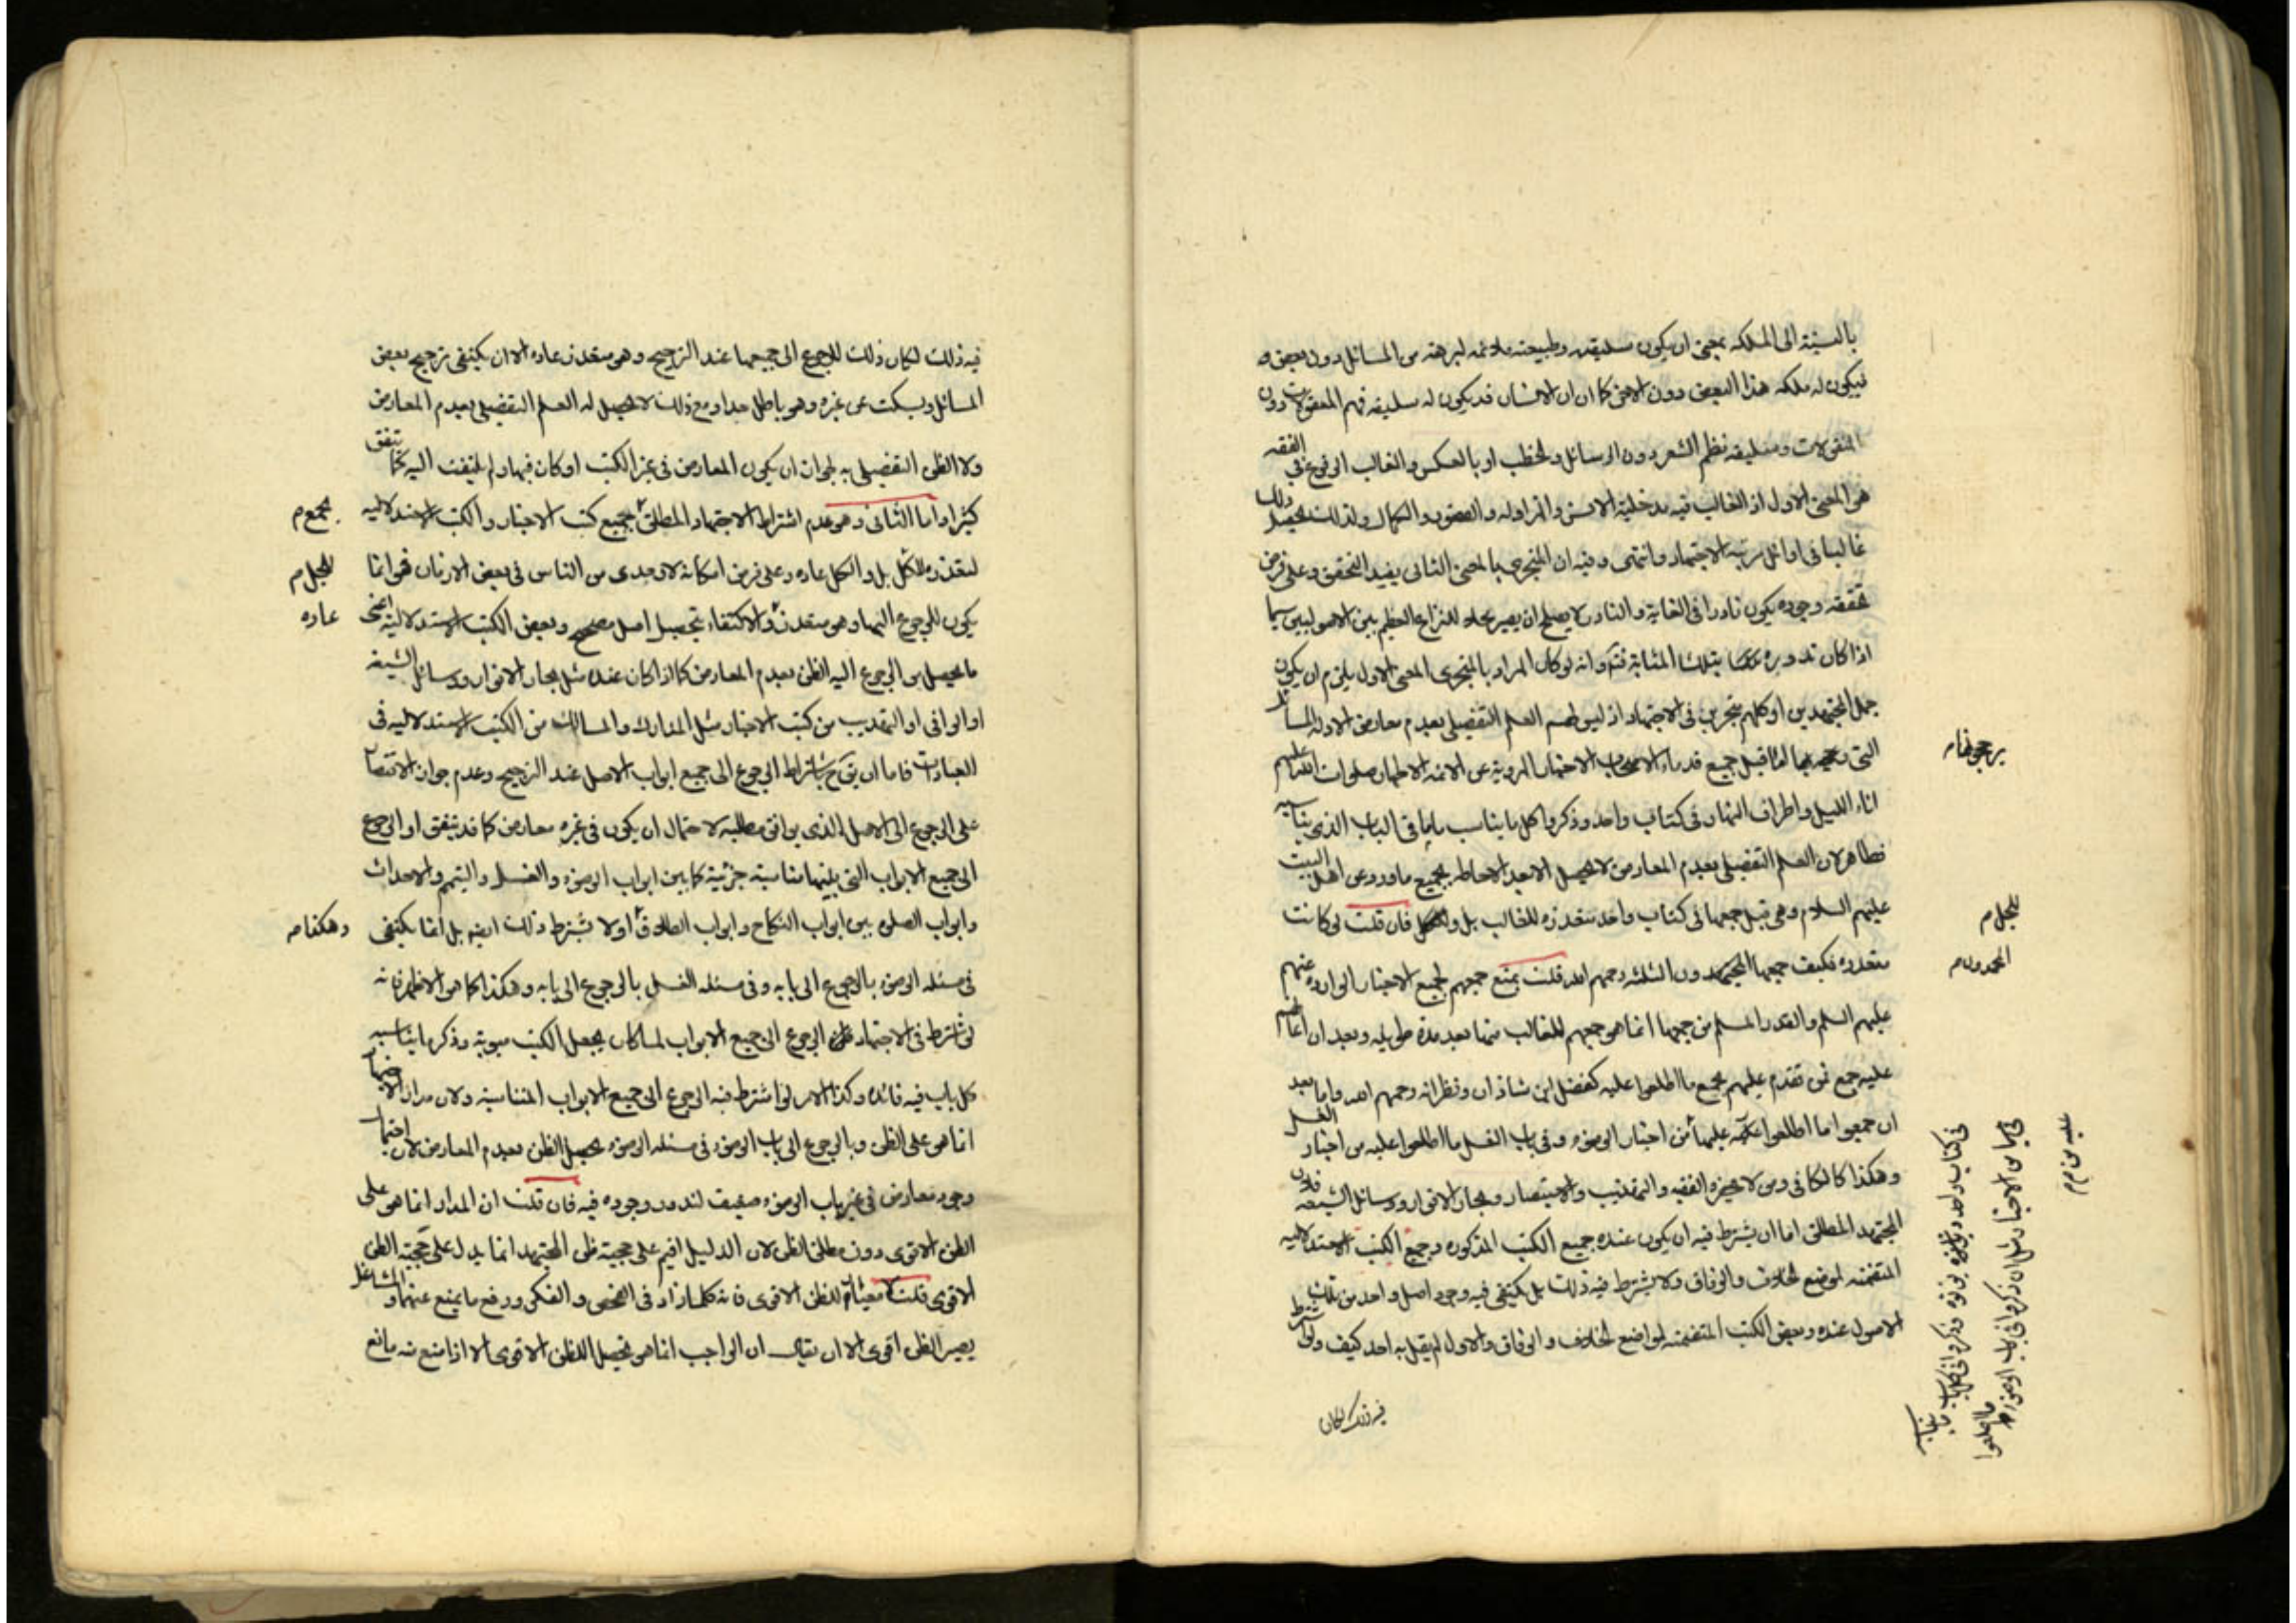 بالنسبة الى الملكه بمعنى ان يكون سليقته وطبيعته ملائمه لبرهة من المسائل دون بعض
فيكون له ملكه هذا البعض دون الاخر كما ان الانسان قد يكون له سليقه فهم المعقولات دون
المنقولات وسليقه نظم الشعر دون الرسائل والخطب او بالعكس والغالب الوقوع في الفقه
هو المعنى الاول اذ الغالب فيه مدخلية الانس والمزاوله والغضون والكمال ولذلك يحصل ذلك
غالبا في اوائل رتبه الاجتهاد وانتهى وفيه ان المتجزى بالمعنى الثانى يفيد التحقق وعلى فرض
تحققه وجوده يكون نادرا فى الغاية والنادر لا يصلح ان يصير محلا للنزاع العظيم بين الاصوليين سيما
اذا كان ندوره بتلك المثابة وانه لو كان المراد بالمتجزى المعنى الاول يلزم ان يكون
جل المجتهدين او كلهم متجزين فى الاجتهاد اذ ليس لهم العلم التفصيلى بعدم معارض الادله المسائل
التى اما قبل جميع قدماء الاصحاب الاخبار المروية عن الائمه الاطهار صلوات الله عليهم
اناء الليل واطراف النهار فى كتاب واحد وذكروا كل ما يناسب بابا فى الباب الذى يناسبه
فظاهر لان العلم التفصيلى بعدم المعارض لا يحصل الا بعد الاحاطه بجميع ما ورد عن اهل البيت
عليهم السلام وهى قبل جمعها فى كتاب واحد متعذره للغالب بل وللكل فان قلت لو كانت
متعذره فكيف جمعها المحمدون الثلثه رحمهم الله قلت نمنع جمعهم لجميع الاخبار الوارده عنهم
عليهم السلم والقدر المسلم من جمعها انما هو جمعهم للغالب منها بعد مدة طويله وبعد ان اعانهم
عليه جمع من تقدم عليهم بجمع ما اطلعوا عليه كفضل ابن شاذان ونظرائه رحمهم الله واما بعد
ان جمعوا ما اطلعوا عليها من اخبار الوضوء وفى باب الغسل ما اطلعوا عليه من اخبار الغسل
وهكذا كالكافى ومن لا يحضره الفقيه والتهذيب والاستبصار وبحار الانوار ووسائل الشيعه فان
المجتهد المطلق اما ان يشترط فيه ان يكون عنده جميع الكتب المذكوره وجميع الكتب الاستدلاليه
المتضمنه لموضع الخلاف والوفاق ولا يشترط فيه ذلك بل يكتفى فيه وجود اصل واحد من تلك
الاصول عنده وبعض الكتب المتضمنه لمواضع الخلاف والوفاق والاول لم يقل به احد كيف ولو اشترط
فيه ذلك لكان
للجل م
المحمدون م
فى كتاب واحد وذكروا فى كل باب ما يناسبه
من الاخبار مثل ان ذكروا فى باب الوضوء ما اطلعوا
عليه من م م
فيه ذلك لكان ذلك للرجوع الى جميعها عند الترجيح وهو متعذر عاده الا ان يكتفى بترجيح بعض
المسائل ويسكت عن غيره وهو باطل جدا ومع ذلك لا يحصل له العلم التفصيلى بعدم المعارض
ولا الظن التفصيلى به لجواز ان يكون المعارض فى غير الكتب او كان فيها ولم يلتفت اليه كما يتفق
كثيرا واما الثانى وهو عدم اشتراط الاجتهاد المطلق بجميع كتب الاخبار والكتب الاستدلاليه
لتعذره للكل بل والكل عاده وعلى فرض امكانه لاوحدى من الناس فى بعض الازمان فهو انما
يكون للرجوع اليها وهو متعذر والاكتفاء بتحصيل اصل مصحح وبعض الكتب الاستدلالية اعنى
ما يحصل بالرجوع اليه الظن بعدم المعارض كما اذا كان عنده مثل بحار الانوار ووسائل الشيعه
او الوافى او التهذيب من كتب الاخبار مثل المدارك والمسالك من الكتب الاستدلاليه فى
العبادات فاما ان يشترط الرجوع الى جميع ابواب الاصل عند الترجيح وعدم جواز الاقتصار
على الرجوع الى الاصل الذى يوافق مطلبه لاحتمال ان يكون فى غيره معارض كما قد يتفق او الرجوع
الى جميع الابواب التى بينها مناسبة جزئية كما بين ابواب الوضوء والغسل والتيمم والاحداث
وابواب الصلوه بين ابواب النكاح وابواب الطلاق اولا يشترط ذلك ايضا بل انما يكتفى
فى مسئله الوضوء بالرجوع الى بابه وفى مسئله الغسل بالرجوع الى بابه وهكذا كما هو الاظهر فانه
لو اشترط فى الاجتهاد الرجوع الى جميع الابواب لما كان بجعل الكتب مبوبة وذكر ما يناسب
كل باب فيه فائده وكذا الامر لو اشترط فيه الرجوع الى جميع الابواب المتناسبة ولان مدار الاجتهاد
انما هو على الظن وبالرجوع الى باب الوضوء فى مسئله الوضوء يحصل الظن بعدم المعارض لان احتمال
وجود معارض فى غير باب الوضوء ضعيف لندور وجوده فيه فان قلت ان المدار انما هو على
الظن الاقوى دون مطلق الظن لان الدليل اقيم على حجية ظن المجتهد انما يدل على حجية الظن
الاقوى قلت لا معيار للظن الاقوى فانه كلما زاد فى الفحص والفكر ورفع ما يمنع عنهما والمشاغل
يصير الظن اقوى الا ان يقال ان الواجب انما هو تحصيل الظن الاقوى الا اذا منع منه مانع
بجمع م
للجل م
عاده
وهكذا م